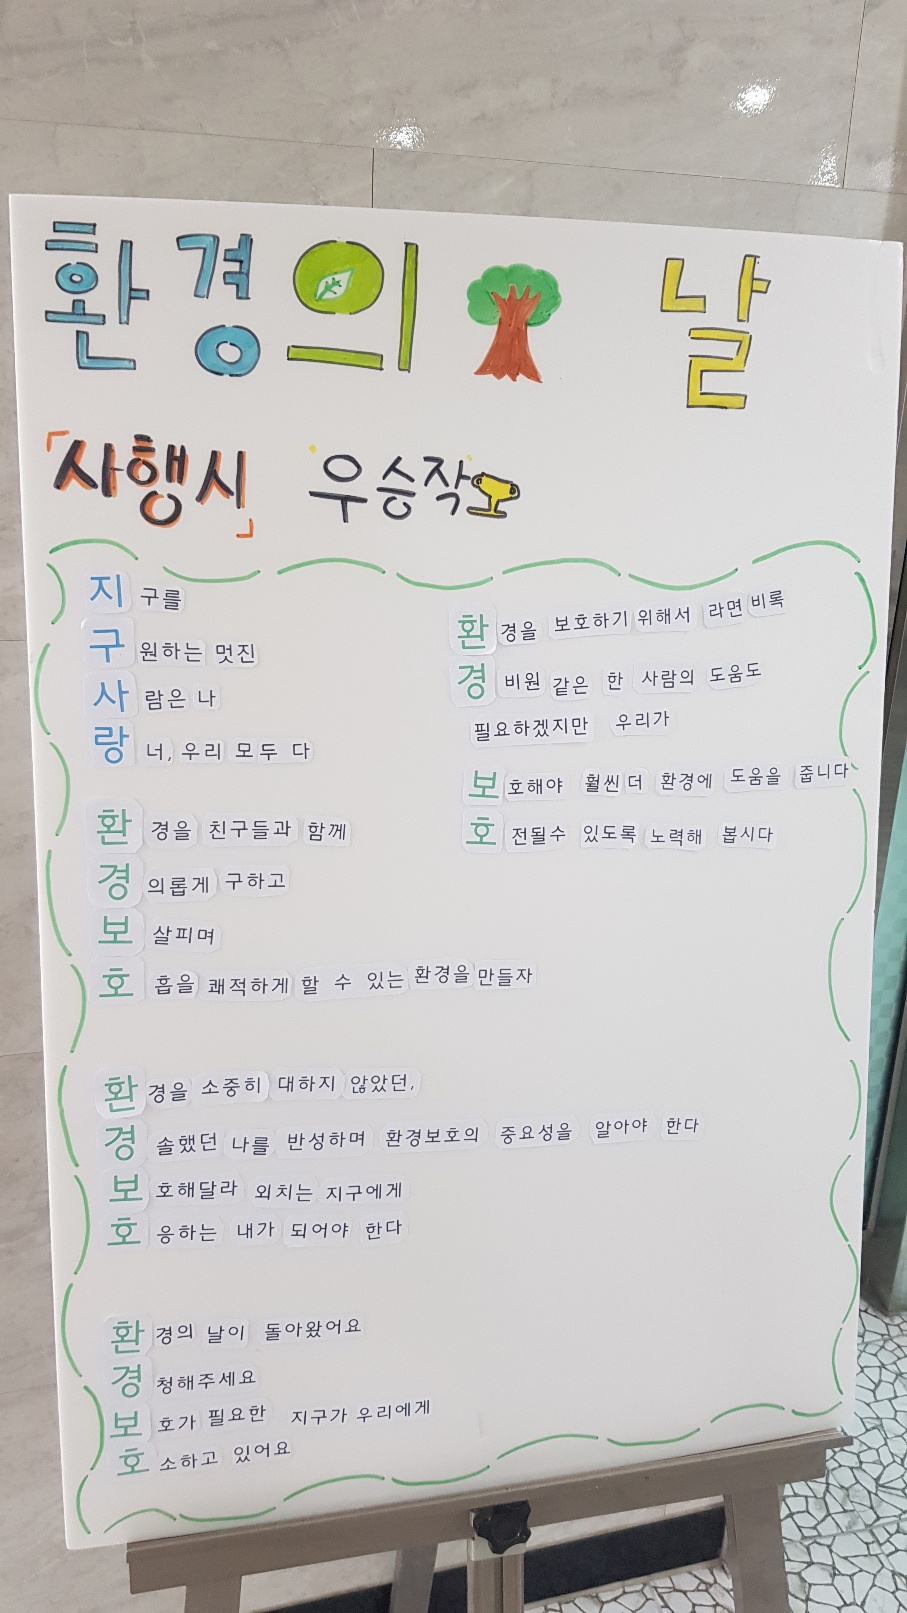 환경의 날
「사행시」 우승작
지구를
구원하는 멋진
사람은 나
랑 너, 우리 모두 다
환경을 친구들과 함께
경의롭게 구하고
보살피며
호흡을 쾌적하게 할 수 있는 환경을 만들자
환경을 보호하기 위해서 라면 비록
경비원 같은 한 사람의 도움도
필요하겠지만 우리가
보호해야 훨씬 더 환경에 도움을 줍니다
호전될수 있도록 노력해 봅시다
환경을 소중히 대하지 않았던,
경솔했던 나를 반성하며 환경보호의 중요성을 알아야 한다
보호해달라 외치는 지구에게
호응하는 내가 되어야 한다
환경의 날이 돌아왔어요
경청해주세요
보호가 필요한 지구가 우리에게
호소하고 있어요